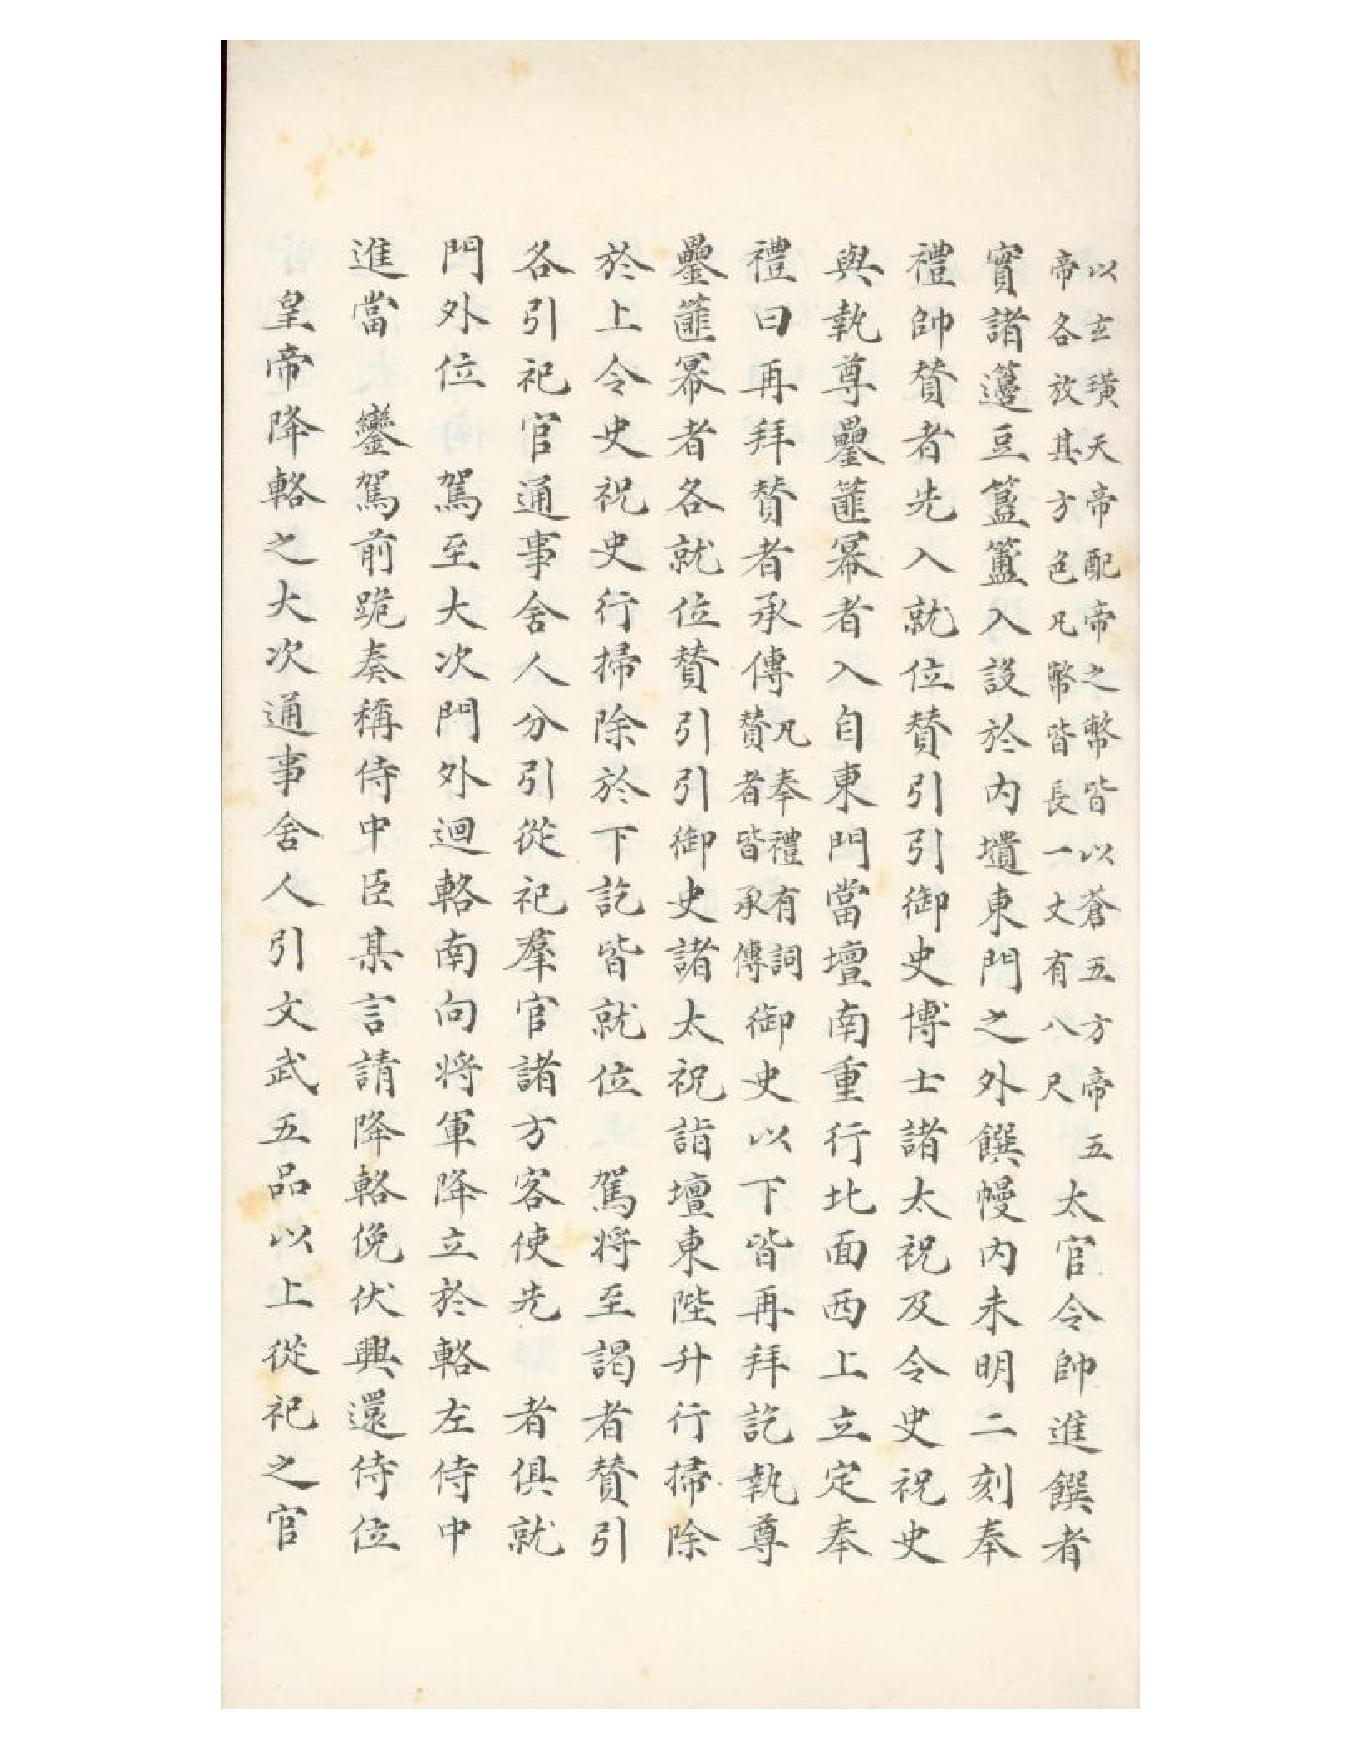 以玄璜天帝配帝之幣皆以蒼五方帝五
帝各放其方色凡幣皆長一丈有八尺
太官令帥進饌者
實諸籩豆簠簋入設於內壝東門之外饌幔內未明二刻奉
禮帥贊者先入就位贊引引御史博士諸太祝及令史祝史
與執尊罍篚冪者入自東門當壇南重行北面西上立定奉
禮曰再拜贊者承傳
凡奉禮有詞
贊者皆承傳
御史以下皆再拜訖執尊
罍篚冪者各就位贊引引御史諸太祝詣壇東陛升行掃除
於上令史祝史行掃除於下訖皆就位 駕將至謁者贊引
各引祀官通事舍人分引從祀羣官諸方客使先 者俱就
門外位 駕至大次門外迴輅南向將軍降立於輅左侍中
進當 鑾駕前跪奏稱侍中臣某言請降輅俛伏興還侍位
皇帝降輅之大次通事舍人引文武五品以上從祀之官